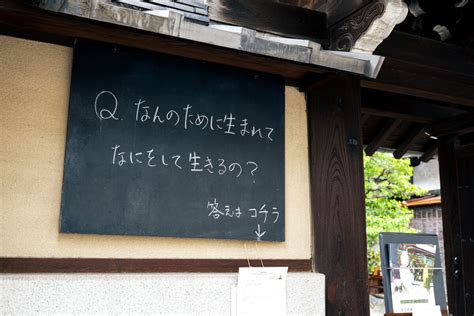 Q. なんのために生まれて
なにをして生きるの？
答えは コチラ
↓